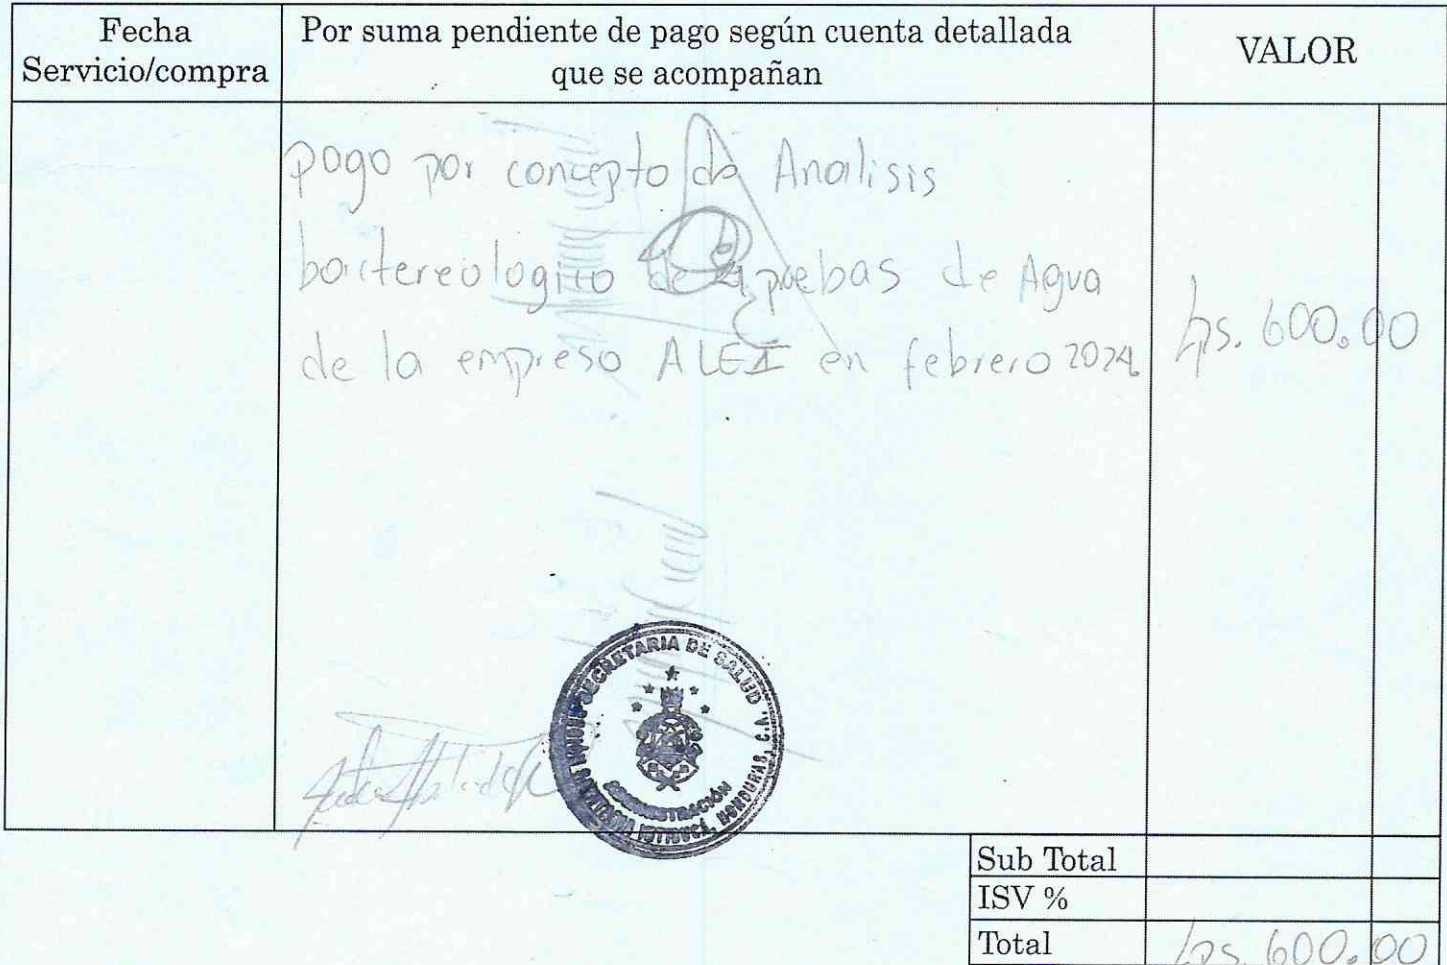 Fecha
Servicio/compra
Por suma pendiente de pago según cuenta detallada
que se acompañan
VALOR
pago por concepto de Analisis
bactereologico de 4 pruebas de Agua
de la empresa ALEI en febrero 2024
Lps. 600.00
SECRETARIA DE SALUD
ADMINISTRACIÓN
HONDURAS, C.A.
Sub Total
ISV %
Total
Lps. 600.00